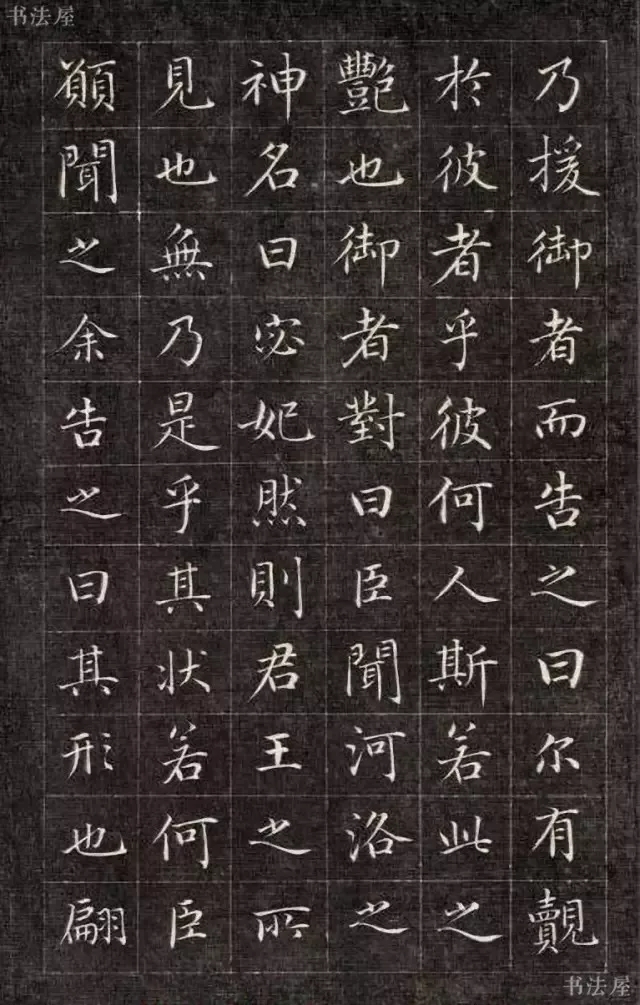 书法屋
乃援御者而告之曰尔有覿
於彼者乎彼何人斯若此之
艷也御者對曰臣聞河洛之
神名曰宓妃然則君王之所
見也無乃是乎其状若何臣
願聞之余告之曰其形也翩
书法屋